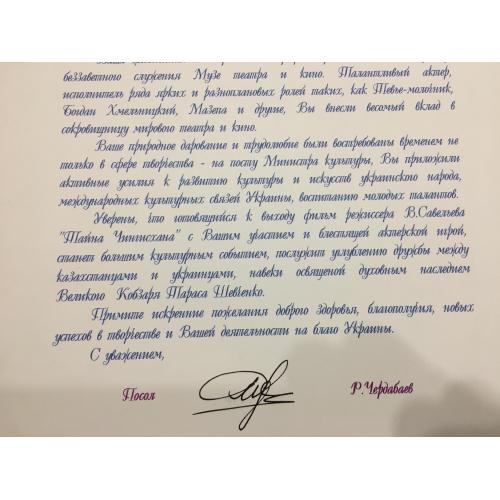 беззаветного служения Музе театра и кино. Талантливый актер,
исполнитель ряда ярких и разноплановых ролей таких, как Тевье-молочник,
Богдан Хмельницкий, Мазепа и другие, Вы внесли весомый вклад в
сокровищницу мирового театра и кино.
Ваше природное дарование и трудолюбие были востребованы временем не
только в сфере творчества - на посту Министра культуры, Вы приложили
активные усилия к развитию культуры и искусств украинского народа,
международных культурных связей Украины, воспитанию молодых талантов.
Уверены, что готовящийся к выходу фильм режиссера В.Савельева
"Тайна Чингисхана" с Вашим участием и блестящей актерской игрой,
станет большим культурным событием, послужит углублению дружбы между
казахстанцами и украинцами, навеки освященной духовным наследием
Великого Кобзаря Тараса Шевченко.
Примите искренние пожелания доброго здоровья, благополучия, новых
успехов в творчестве и Вашей деятельности на благо Украины.
С уважением,
Посол Р.Чердабаев